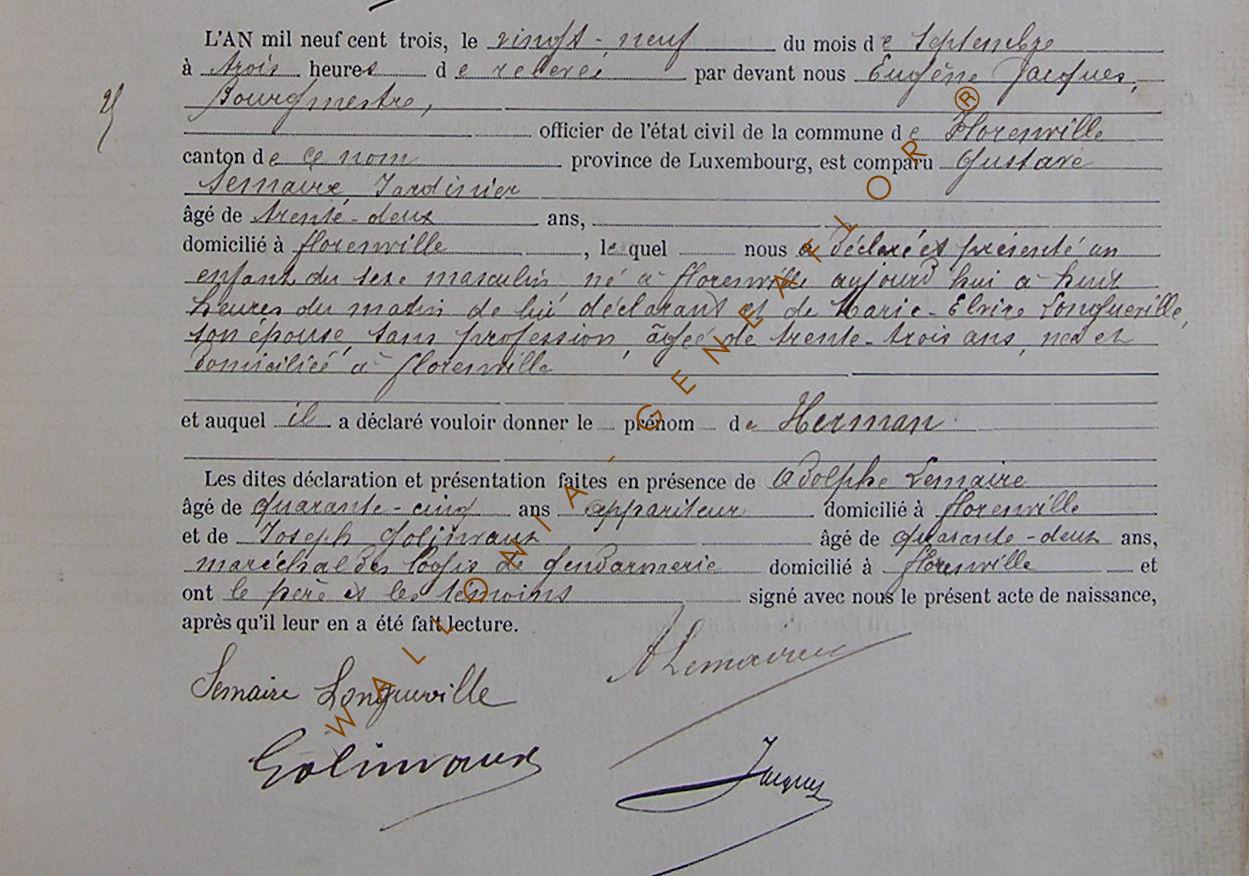 L'AN mil neuf cent trois, le vingt-neuf du mois de Septembre
à trois heures de relevée par devant nous Eugène Jacques,
Bourgmestre,
officier de l'état civil de la commune de Florenville
canton de ce nom province de Luxembourg, est comparu Gustave
Lemaire, Jardinier
âgé de trente-deux ans,
domicilié à Florenville, lequel nous a déclaré et présenté un
enfant du sexe masculin, né à Florenville aujourd'hui à huit
heures du matin de lui déclarant et de Marie-Elvire Longueville,
son épouse, sans profession, âgée de trente-trois ans, née et
domiciliée à Florenville
et auquel il a déclaré vouloir donner le prénom de Herman
Les dites déclaration et présentation faites en présence de Adolphe Lemaire
âgé de quarante-cinq ans appariteur domicilié à Florenville
et de Joseph Golinvaux âgé de quarante-deux ans,
maréchal des logis de gendarmerie domicilié à Florenville et
ont le père et les témoins signé avec nous le présent acte de naissance,
après qu'il leur en a été fait lecture.
Lemaire Longueville
A Lemaire
Golinvaux
Jacques
WALLONIA-GENEAFLOR ®